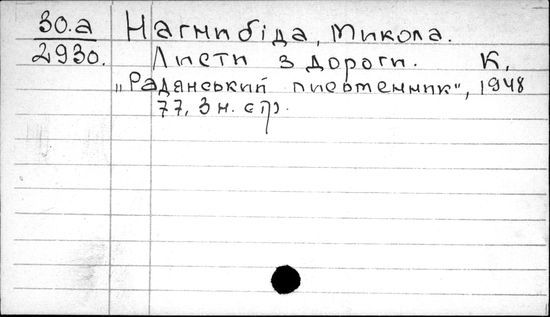 30.а Нагнибіда, Микола.
2930. Листи з дороги. К,
„Радянський письменник", 1948
77, 3 н. стр.